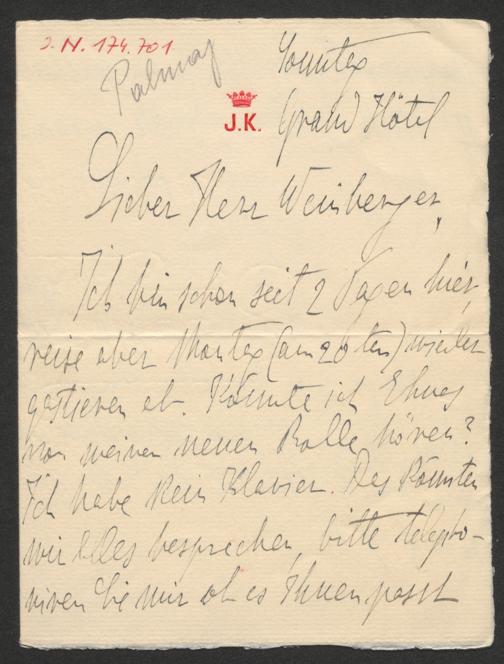 J.N. 174.701
Palmay
Sonntag
J.K.
Grand Hôtel
Lieber Herr Weinberger,
Ich bin schon seit 2 Tagen hier,
reise aber Montag (am 20ten) wieder
gastieren ab. Könnte ich Etwas
von meiner neuen Rolle hören?
Ich habe kein Klavier. Da könnten
wir Alles besprechen, bitte telepho-
niren Sie mir ob es Ihnen passt